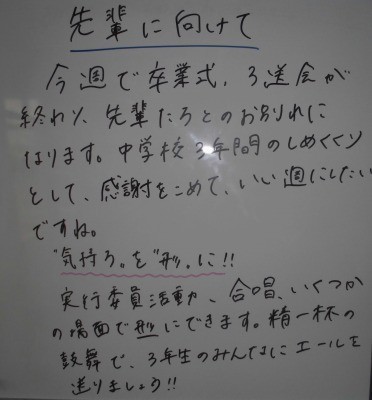 先輩に向けて
今週で卒業式、3送会が
終わり、先輩たちとのお別れに
なります。中学校3年間のしめくくり
として、感謝をこめて、いい週にしたい
ですね。
"気持ち"を"形"に!!
実行委員活動、合唱、いくつか
の場面で形にできます。精一杯の
鼓舞で、3年生のみんなにエールを
送りましょう!!